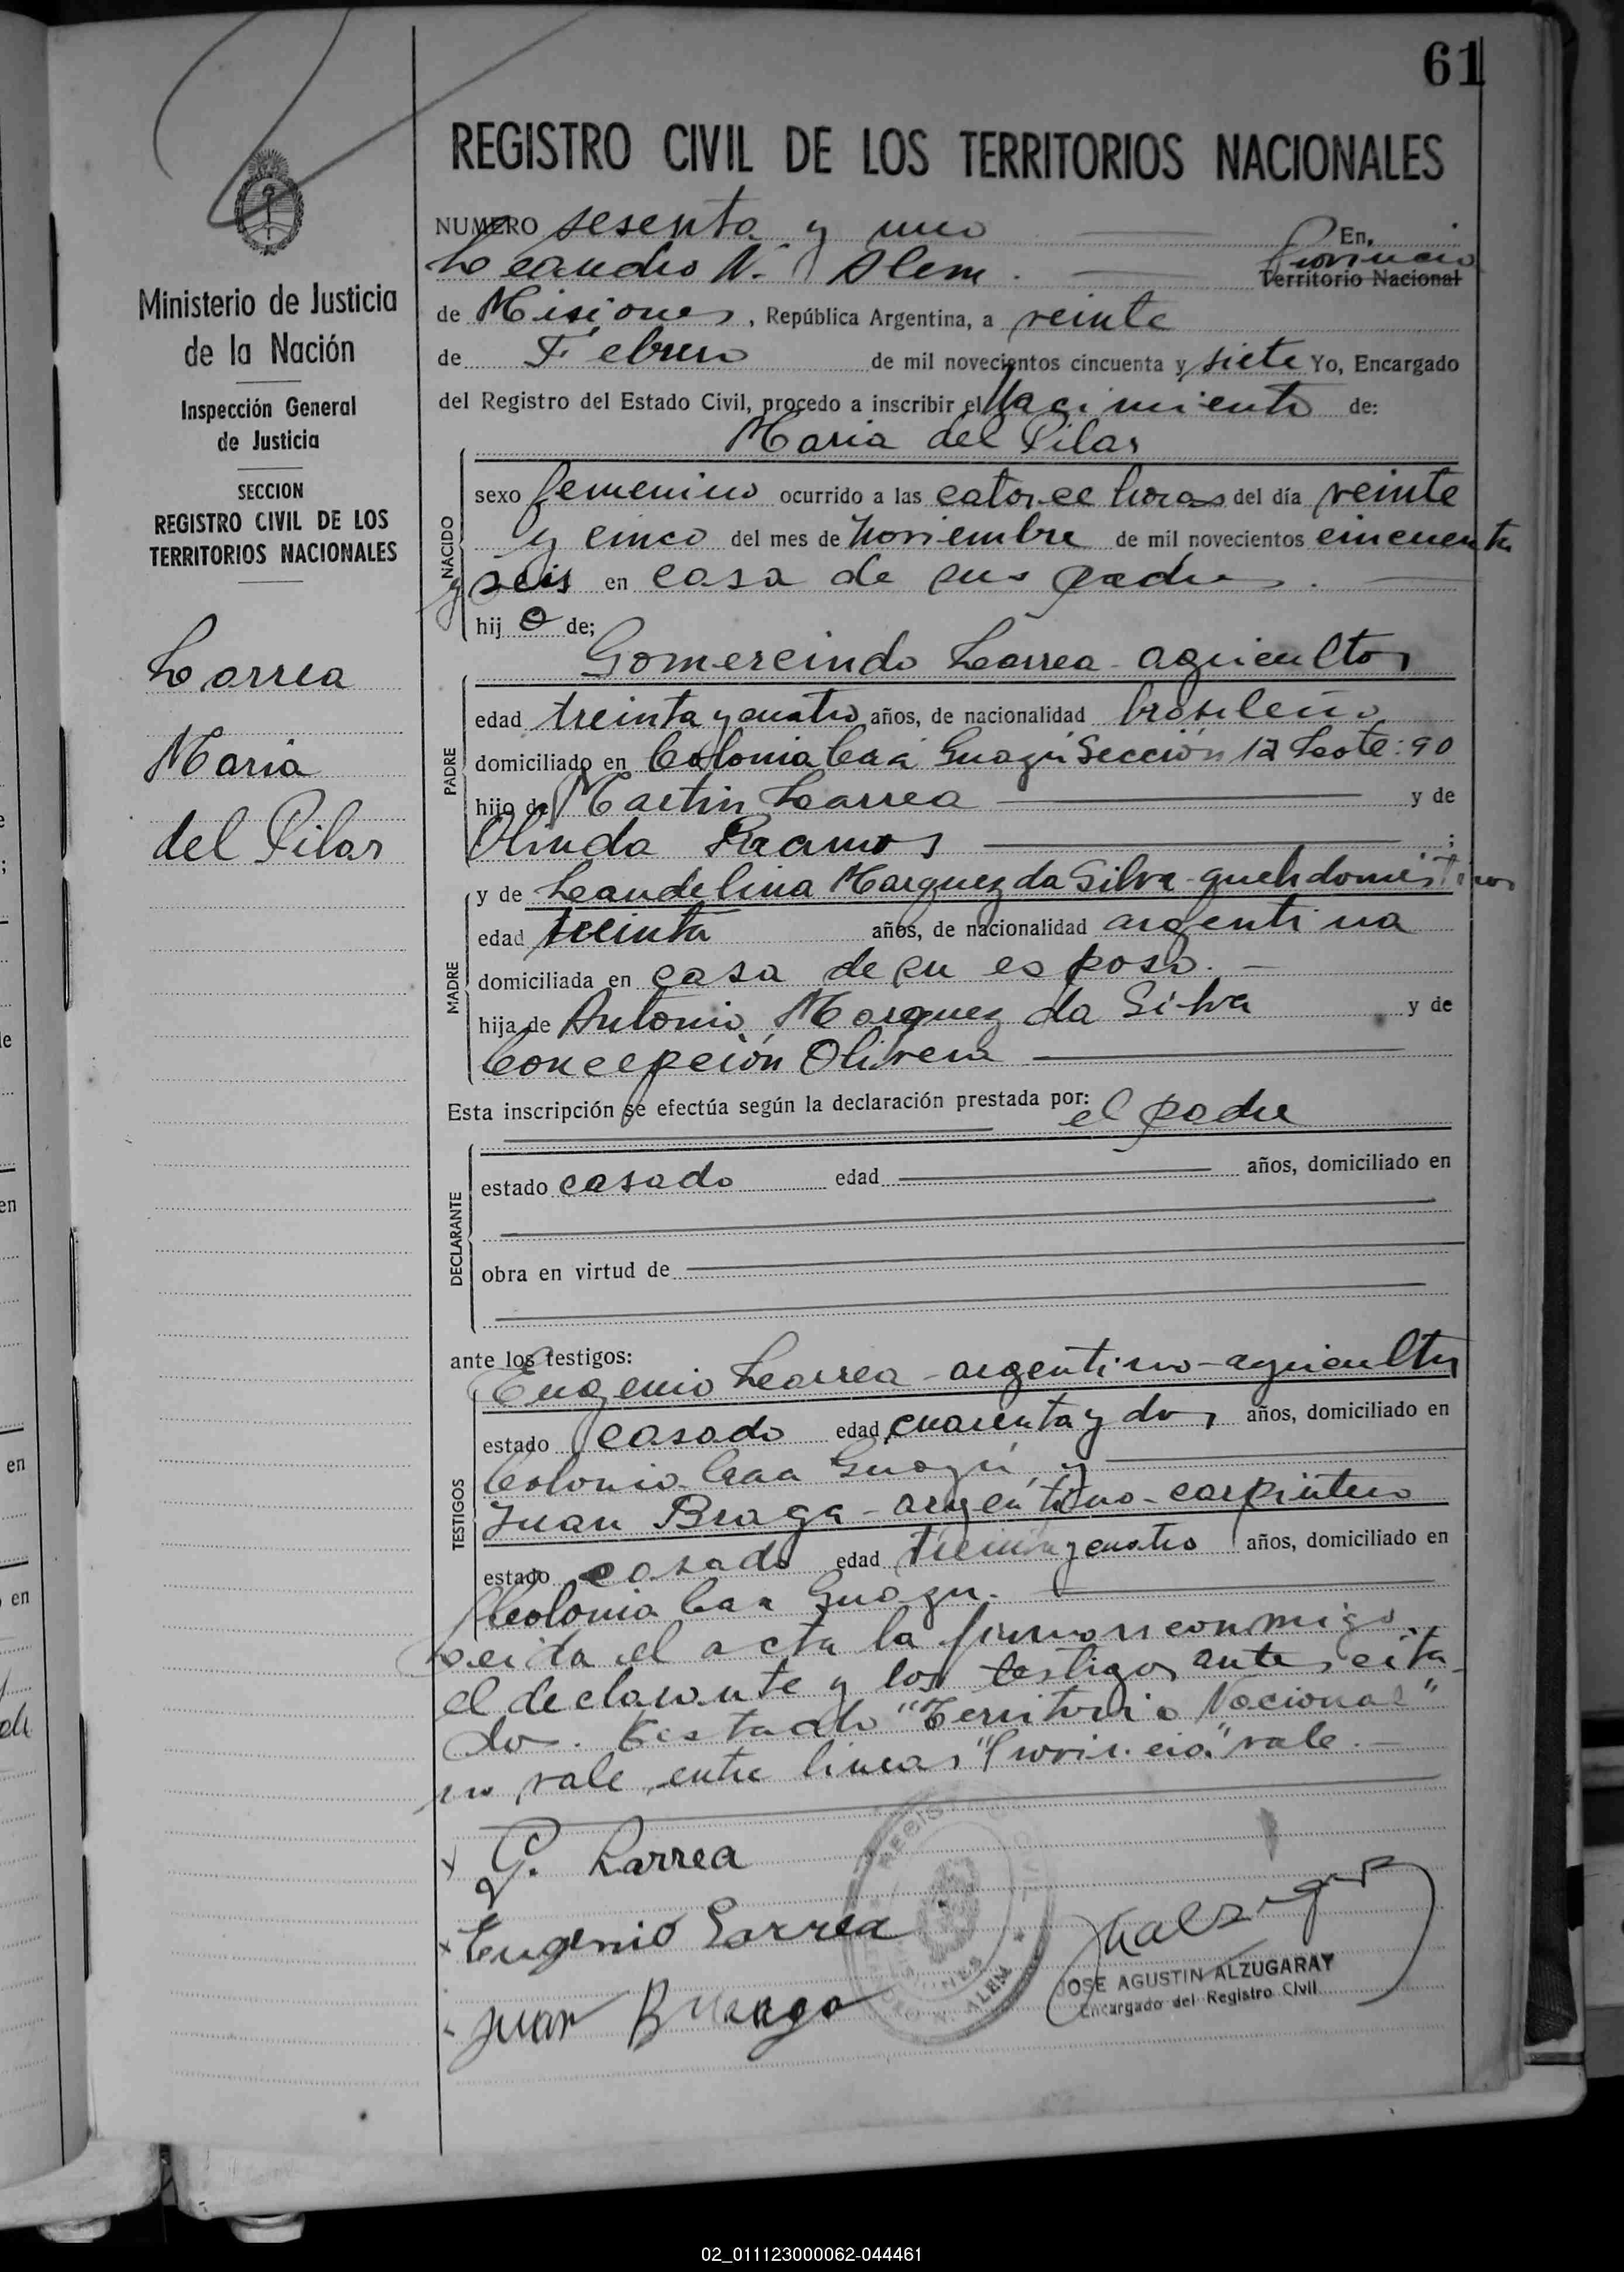 61
REGISTRO CIVIL DE LOS TERRITORIOS NACIONALES
NUMERO sesenta y uno En,
Leandro N. Alem. Provincia
Territorio Nacional
de Misiones, República Argentina, a veinte
de Febrero de mil novecientos cincuenta y siete Yo, Encargado
del Registro del Estado Civil, procedo a inscribir el Nacimiento de:
Maria del Pilar
NACIDO
sexo femenino ocurrido a las catorce horas del día veinte
y cinco del mes de Noviembre de mil novecientos cincuenta
y seis en casa de sus padres.
hij o de;
Gomercindo Larrea - agricultor
PADRE
edad treinta y cuatro años, de nacionalidad brasileño
domiciliado en Colonia Caá Guazú Sección 12 Lote: 90
hijo de Martin Larrea y de
Olinda Ramos ;
y de Leandelina Marquez da Silva - queh domésticos
MADRE
edad treinta años, de nacionalidad argentina
domiciliada en casa de su esposo. -
hija de Antonio Marquez da Silva y de
Concepción Olivera
Esta inscripción se efectúa según la declaración prestada por: el padre
DECLARANTE
estado casado edad años, domiciliado en
obra en virtud de
ante los testigos:
TESTIGOS
Eugenio Larrea - argentino - agricultor
estado casado edad cuarenta y dos años, domiciliado en
Colonia Caa Guazú y
Juan Braga - argentino - carpintero
estado casado edad treinta y cuatro años, domiciliado en
Colonia Caa Guazu.
Leida el acta la firman conmigo
el declarante y los testigos antes cita-
dos. Testado "Territorio Nacional"
no vale, entre lineas "Provincia" vale. -
x G. Larrea
x Eugenio Larrea
Juan Braga
JOSE AGUSTIN ALZUGARAY
Encargado del Registro Civil
Ministerio de Justicia
de la Nación
Inspección General
de Justicia
SECCION
REGISTRO CIVIL DE LOS
TERRITORIOS NACIONALES
Larrea
Maria
del Pilar
02_011123000062-044461